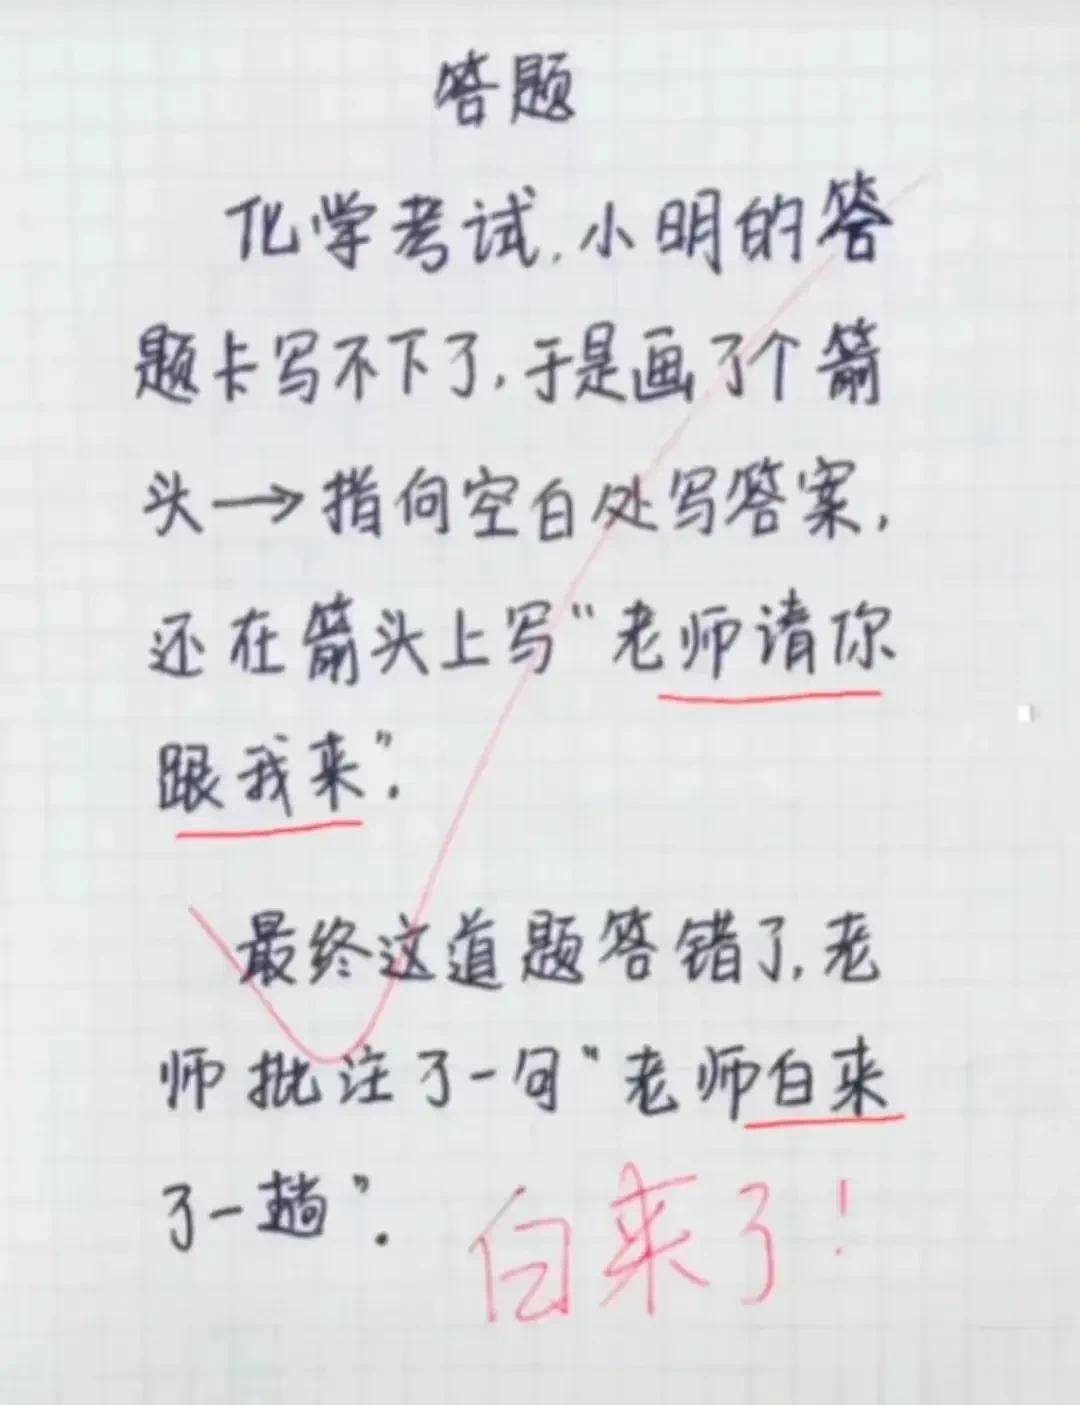 答题
化学考试,小明的答
题卡写不下了,于是画了个箭
头→指向空白处写答案,
还在箭头上写“老师请你
跟我来”.
最终这道题答错了,老
师批注了一句“老师白来
了一趟”.
白来了!